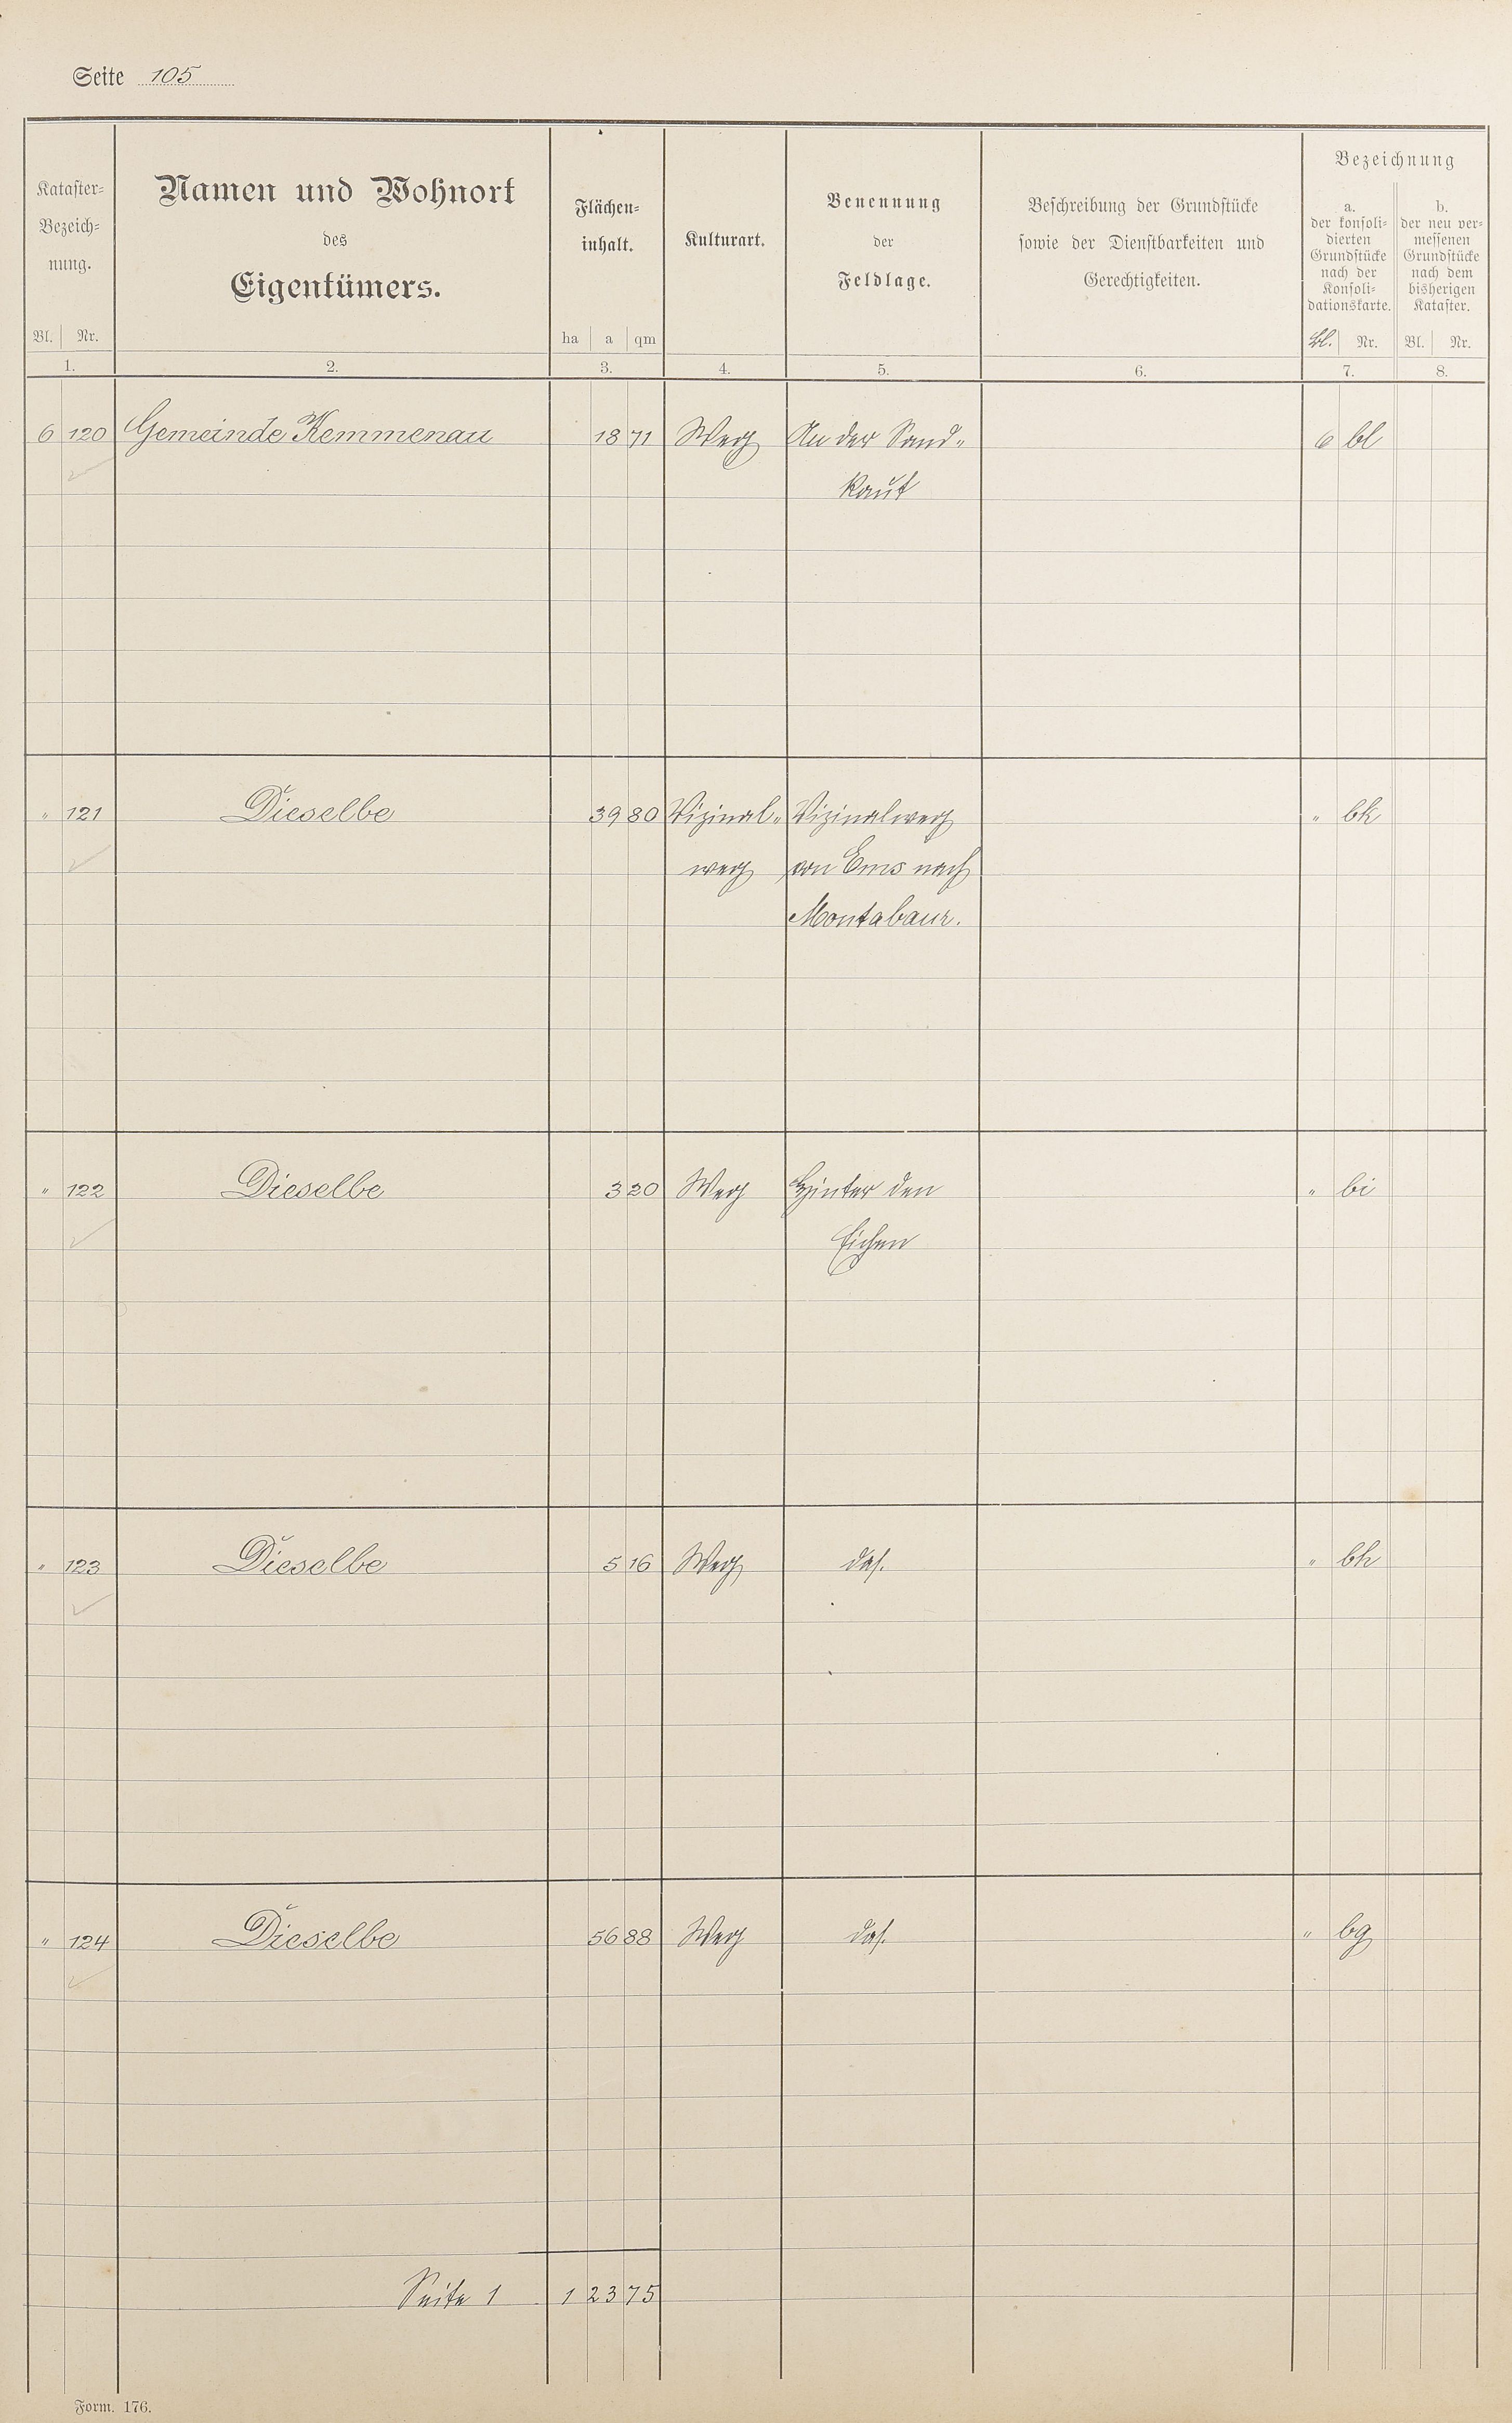 Seite 105
Kataster-
Bezeich-
nung.
Bl. Nr.
1.
Namen und Wohnort
des
Eigentümers.
2.
Flächen-
inhalt.
ha a qm
3.
Kulturart.
4.
Benennung
der
Feldlage.
5.
Beschreibung der Grundstücke
sowie der Dienstbarkeiten und
Gerechtigkeiten.
6.
Bezeichnung
a.
der konsoli-
dierten
Grundstücke
nach der
Konsoli-
dationskarte.
Bl. Nr.
7.
b.
der neu ver-
messenen
Grundstücke
nach dem
bisherigen
Kataster.
Bl. Nr.
8.
6 120 Gemeinde Kemmenau 18 71 Weg An der Sand- 6 bl
kaut
" 121 Dieselbe 39 80 Vizinal- Vizinalweg " bk
weg von Ems nach
Montabaur.
" 122 Dieselbe 3 20 Weg Hinter den " bi
Eichen
" 123 Dieselbe 5 16 Weg das. " bh
" 124 Dieselbe 56 88 Weg das. " bg
Seite 1 1 23 75
Form. 176.